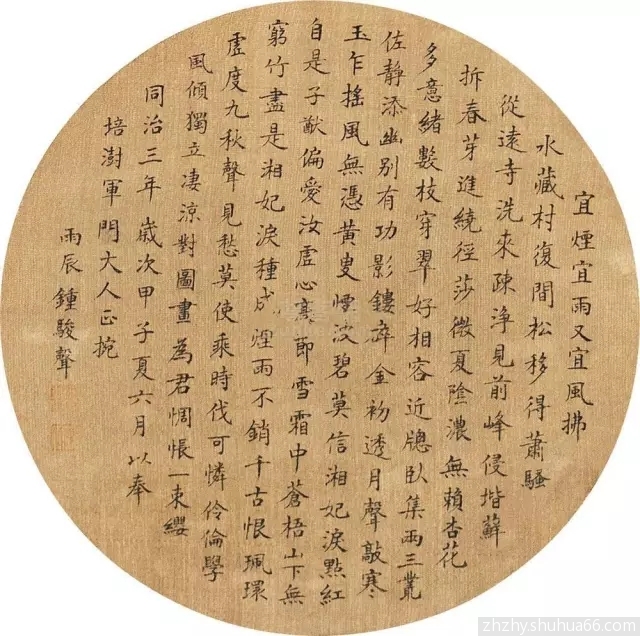 宜煙宜雨又宜風拂
水藏村復間松移得蕭騷
從遠寺洗來疎淨見前峰侵堦蘚
拆春芽迸繞徑莎微夏陰濃無賴杏花
多意緒數枝穿翠好相容近牕臥集兩三叢
佐靜添幽別有功影鏤碎金初透月聲敲寒
玉乍搖風無憑黃叟煙波碧莫信湘妃淚點紅
自是子猷偏愛汝虛心高節雪霜中蒼梧山下無
窮竹盡是湘妃淚種成煙雨不銷千古恨珮環
虛度九秋聲見愁莫使乘時伐可憐伶倫學
風傾獨立凄涼對圖畫為君惆悵一束纓
同治三年歲次甲子夏六月以奉
培澍軍門大人正捥
雨辰鍾駿聲
zhzhy.shuhua66.com